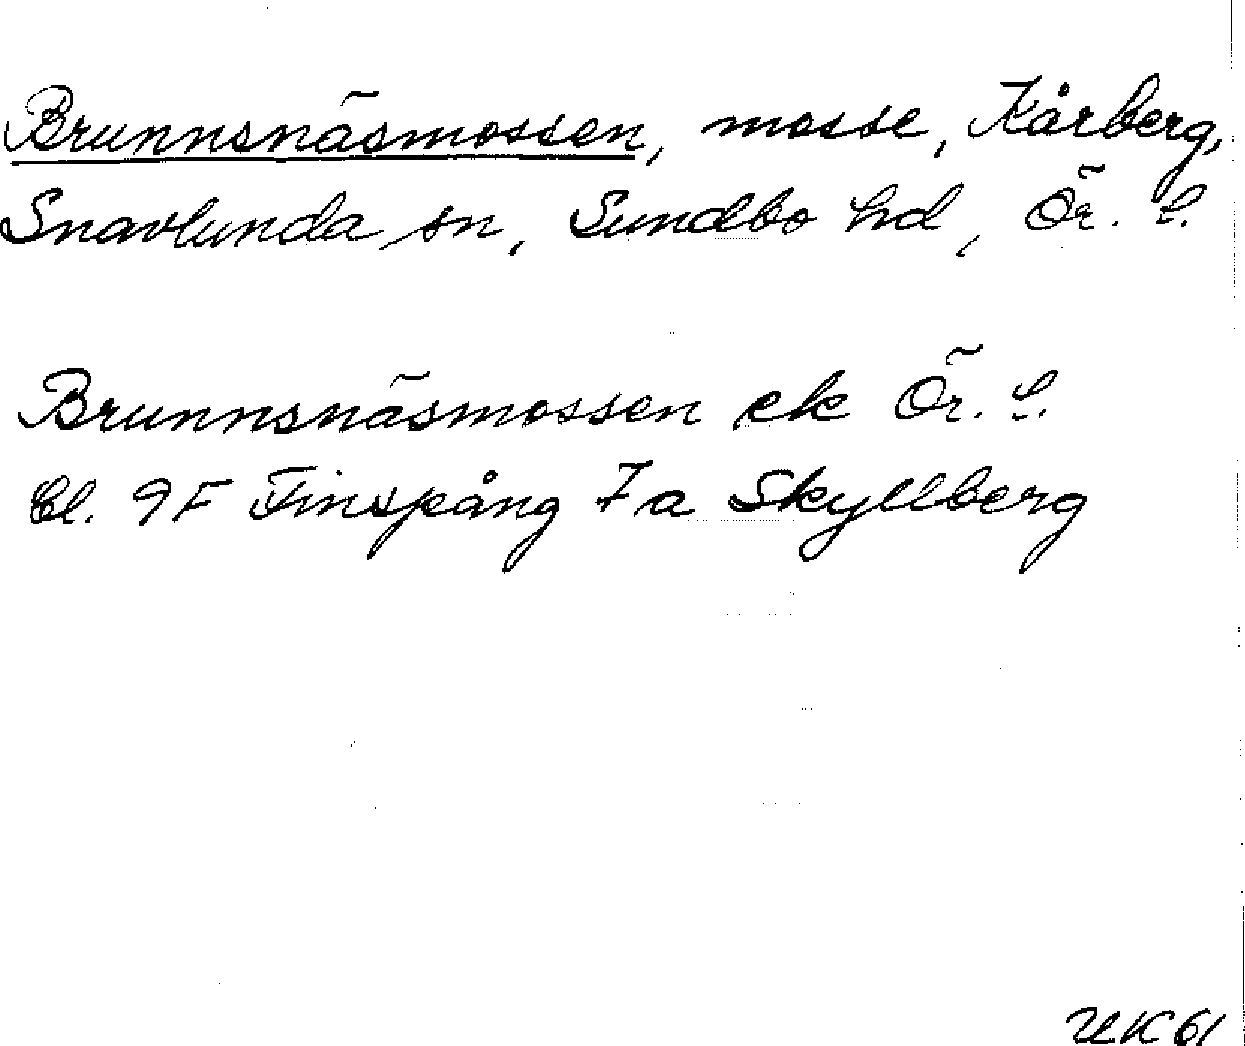 Brunnsnäsmossen, mosse, Kårberg,
Snavlunda sn, Sundbo hd, Ör. l.
Brunnsnäsmossen ek Ör. l.
bl. 9F Finspång 7a Skyllberg
UK 61